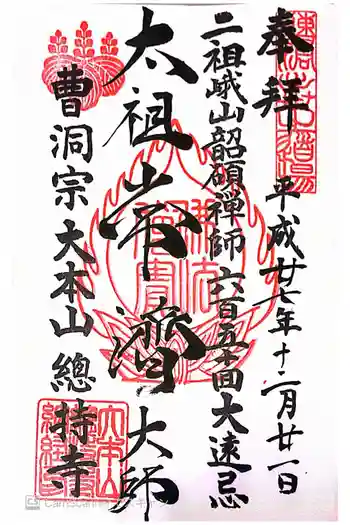 奉拜
平成廿七年十二月廿一日
二祖峨山韶碩禅師六百五十回大遠忌
太祖常濟大師
曹洞宗大本山總持寺